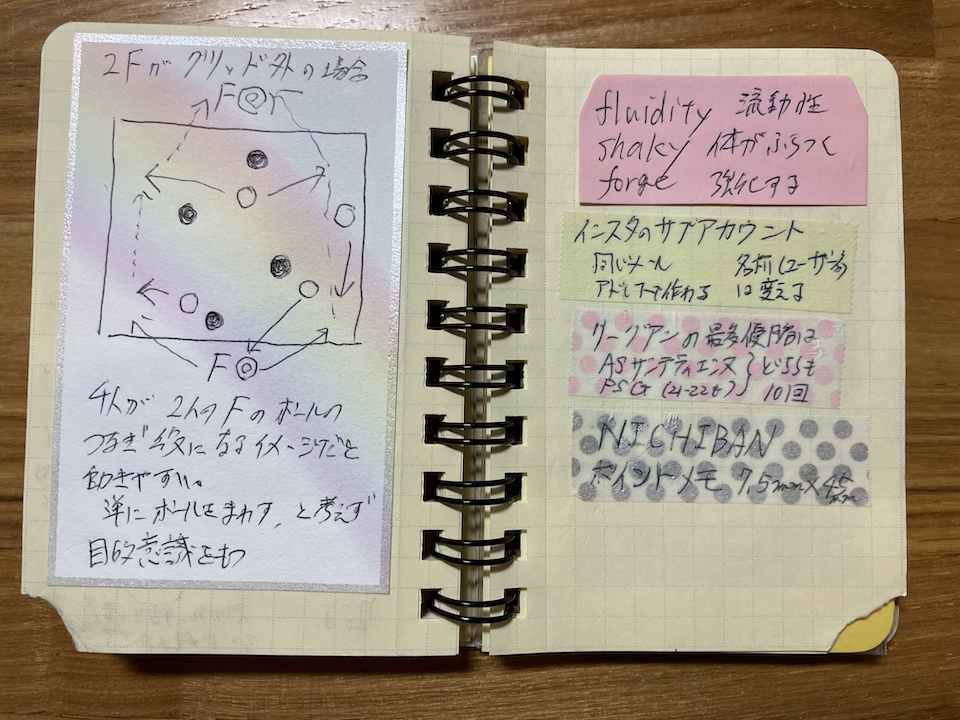 2Fがグリッド外の場合
F◎r
F◎
4人が2人のFのボールの
つなぎ役になるイメージだと
動きやすい。
単にボールをまわす、と考えず
目的意識をもつ
fluidity 流動性
shaky 体がふらつく
forge 強化する
インスタのサブアカウント
同じメール 名前(ユーザー名)
アドレスで作れる は変える
リーグアンの最多優勝は
ASサンテティエンヌ}どちらも
PSG (21-22まで)}10回
NICHIBAN
ポイントメモ 7.5mm×45mm